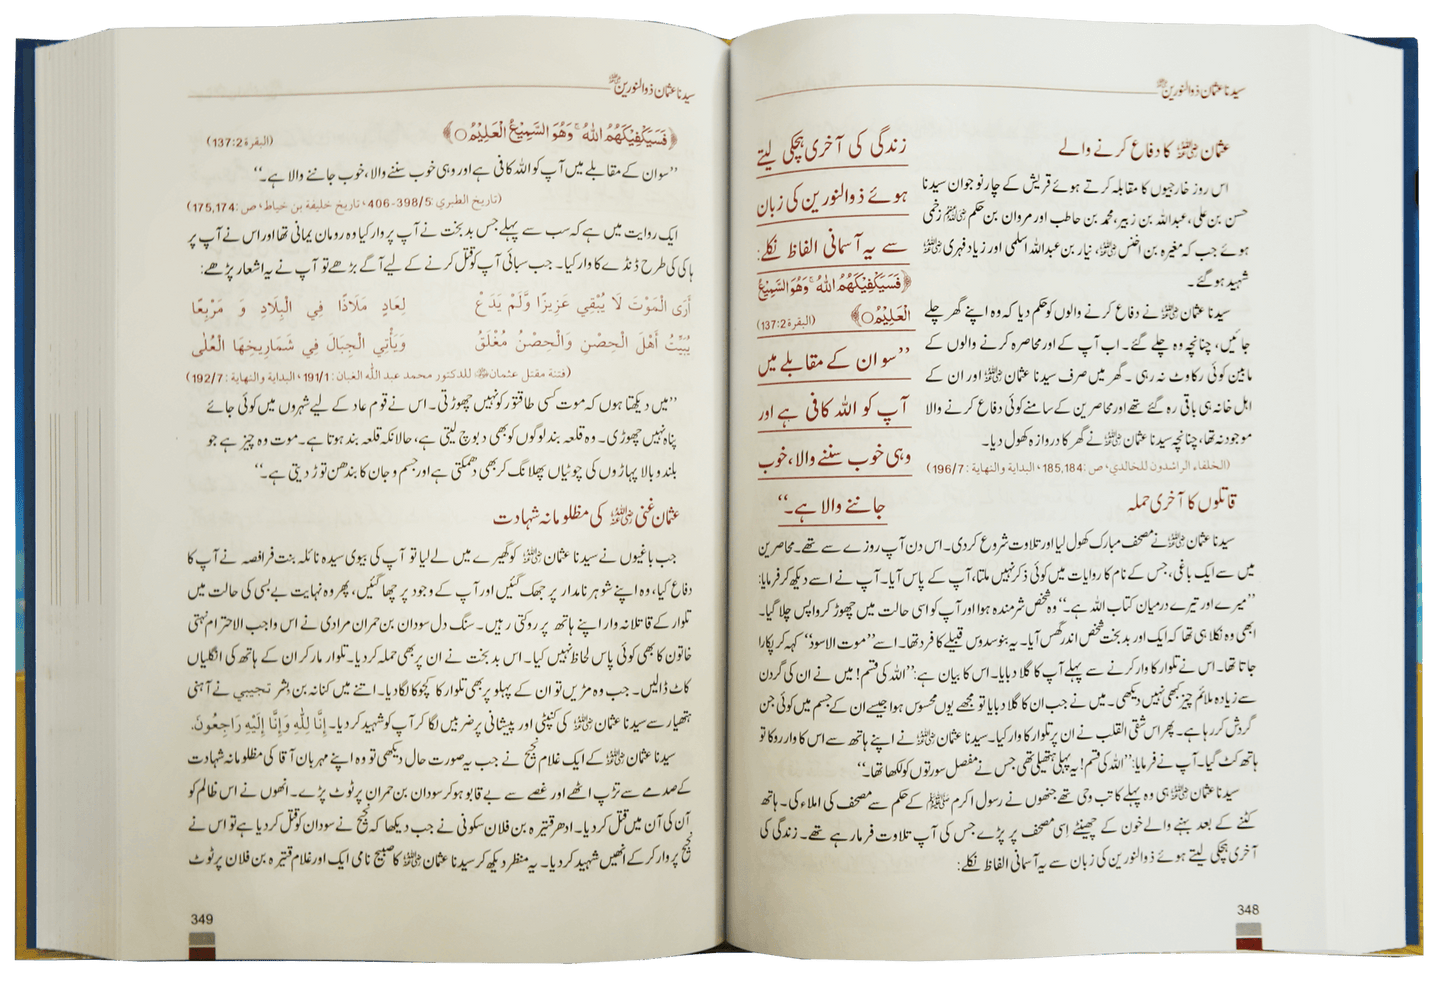 سیدنا عثمان ذوالنورین رضی اللہ عنہ
عثمان رضی اللہ عنہ کا دفاع کرنے والے
اس روز خارجیوں کا مقابلہ کرتے ہوئے قریش کے چار نوجوان سیدنا
حسن بن علی، عبداللہ بن زبیر، محمد بن حاطب اور مروان بن حکم رضی اللہ عنہم زخمی
ہوئے جب کہ مغیرہ بن اخنس رضی اللہ عنہ، نیار بن عبداللہ اسلمی اور زیاد فہری رضی اللہ عنہ
شہید ہوگئے۔
سیدنا عثمان رضی اللہ عنہ نے دفاع کرنے والوں کو حکم دیا کہ وہ اپنے گھر چلے
جائیں، چنانچہ وہ چلے گئے۔ اب آپ کے اور محاصرہ کرنے والوں کے
مابین کوئی رکاوٹ نہ رہی۔ گھر میں صرف سیدنا عثمان رضی اللہ عنہ اور ان کے
اہل خانہ ہی باقی رہ گئے تھے اور محاصرین کے سامنے کوئی دفاع کرنے والا
موجود نہ تھا، چنانچہ سیدنا عثمان رضی اللہ عنہ نے گھر کا دروازہ کھول دیا۔
(الخلفاء الراشدون للخالدي، ص: 185,184، البداية والنهاية: 196/7)
زندگی کی آخری ہچکی لیتے
ہوئے ذوالنورین کی زبان
سے یہ آسمانی الفاظ نکلے:
﴿فَسَيَكْفِيكَهُمُ اللّٰهُ ۚ وَهُوَ السَّمِيْعُ
الْعَلِيْمُ○﴾ (البقرة 137:2)
’’سو ان کے مقابلے میں
آپ کو اللہ کافی ہے اور
وہی خوب سننے والا، خوب
جاننے والا ہے۔‘‘
قاتلوں کا آخری حملہ
سیدنا عثمان رضی اللہ عنہ نے مصحف مبارک کھول لیا اور تلاوت شروع کردی۔ اس دن آپ روزے سے تھے۔ محاصرین
میں سے ایک باغی، جس کے نام کا روایات میں کوئی ذکر نہیں ملتا، آپ کے پاس آیا۔ آپ نے اسے دیکھ کر فرمایا:
’’میرے اور تیرے درمیان کتاب اللہ ہے۔‘‘ وہ شخص شرمندہ ہوا اور آپ کو اسی حالت میں چھوڑ کر واپس چلا گیا۔
ابھی وہ نکلا ہی تھا کہ ایک اور بدبخت شخص اندر گھس آیا۔ یہ بنو سدوس قبیلے کا فرد تھا۔ اسے ’’موت الاسود‘‘ کہہ کر پکارا
جاتا تھا۔ اس نے تلوار کا وار کرنے سے پہلے آپ کا گلا دبایا۔ اس کا بیان ہے: ’’اللہ کی قسم! میں نے ان کی گردن
سے زیادہ ملائم چیز کبھی نہیں دیکھی۔ میں نے جب ان کا گلا دبایا تو مجھے یوں محسوس ہوا جیسے ان کے جسم میں کوئی جن
گردش کر رہا ہے۔ پھر اس شقی القلب نے ان پر تلوار کا وار کیا۔ سیدنا عثمان رضی اللہ عنہ نے اپنے ہاتھ سے اس کا وار روکا تو
ہاتھ کٹ گیا۔ آپ نے فرمایا: ’’اللہ کی قسم! یہ پہلی ہتھیلی تھی جس نے مفصل سورتوں کو لکھا تھا۔‘‘
سیدنا عثمان رضی اللہ عنہ ہی وہ پہلے کاتب وحی تھے جنھوں نے رسول اکرم ﷺ کے حکم سے مصحف کی املاء کی۔ ہاتھ
کٹنے کے بعد بہنے والے خون کے چھینٹے اسی مصحف پر پڑے جس کی آپ تلاوت فرما رہے تھے۔ زندگی کی
آخری ہچکی لیتے ہوئے ذوالنورین کی زبان سے یہ آسمانی الفاظ نکلے:
348
سیدنا عثمان ذوالنورین رضی اللہ عنہ
﴿فَسَيَكْفِيكَهُمُ اللّٰهُ ۚ وَهُوَ السَّمِيْعُ الْعَلِيْمُ○﴾ (البقرة 137:2)
’’سو ان کے مقابلے میں آپ کو اللہ کافی ہے اور وہی خوب سننے والا، خوب جاننے والا ہے۔‘‘
(تاريخ الطبري: 398/5-406، تاريخ خليفة بن خياط، ص: 175,174)
ایک روایت میں ہے کہ سب سے پہلے جس بدبخت نے آپ پر وار کیا وہ رومان یمانی تھا اور اس نے آپ پر
ہاکی کی طرح ڈنڈے کا وار کیا۔ جب سبائی آپ کو قتل کرنے کے لیے آگے بڑھے تو آپ نے یہ اشعار پڑھے:
أَرَى الْمَوْتَ لَا يُبْقِي عَزِيزًا وَّلَمْ يَدَعْ لِعَادٍ مَلَاذًا فِي الْبِلَادِ وَ مَرْبِعًا
يُبَيِّتُ أَهْلَ الْحِصْنِ وَالْحِصْنُ مُغْلَقٌ وَيَأْتِي الْجِبَالَ فِي شَمَارِيخِهَا الْعُلٰى
(فتنة مقتل عثمان رضی اللہ عنہ للدكتور محمد عبد الله الغبان: 191/1، البداية والنهاية: 192/7)
’’میں دیکھتا ہوں کہ موت کسی طاقتور کو نہیں چھوڑتی۔ اس نے قوم عاد کے لیے شہروں میں کوئی جائے
پناہ نہیں چھوڑی۔ وہ قلعہ بند لوگوں کو بھی دبوچ لیتی ہے، حالانکہ قلعہ بند ہوتا ہے۔ موت وہ چیز ہے جو
بلند و بالا پہاڑوں کی چوٹیاں پھلانگ کر بھی دھمکتی ہے اور جسم و جان کا بندھن توڑ دیتی ہے۔‘‘
عثمان غنی رضی اللہ عنہ کی مظلومانہ شہادت
جب باغیوں نے سیدنا عثمان رضی اللہ عنہ کو گھیرے میں لے لیا تو آپ کی بیوی سیدہ نائلہ بنت فرافصہ نے آپ کا
دفاع کیا، وہ اپنے شوہر نامدار پر جھک گئیں اور آپ کے وجود پر چھا گئیں، پھر وہ نہایت بے بسی کی حالت میں
تلوار کے قاتلانہ وار اپنے ہاتھ پر روکتی رہیں۔ سنگ دل سودان بن حمران مرادی نے اس واجب الاحترام نہتی
خاتون کا بھی کوئی پاس لحاظ نہیں کیا۔ اس بدبخت نے ان پر بھی حملہ کر دیا۔ تلوار مار کر ان کے ہاتھ کی انگلیاں
کاٹ ڈالیں۔ جب وہ مڑیں تو ان کے پہلو پر بھی تلوار کا کچوکا لگا دیا۔ اتنے میں کنانہ بن بشر تجیبی نے آہنی
ہتھیار سے سیدنا عثمان رضی اللہ عنہ کی کنپٹی اور پیشانی پر ضربیں لگا کر آپ کو شہید کر دیا۔ إِنَّا لِلّٰهِ وَإِنَّا إِلَيْهِ رَاجِعُونَ.
سیدنا عثمان رضی اللہ عنہ کے ایک غلام نجیح نے جب یہ صورت حال دیکھی تو وہ اپنے مہربان آقا کی مظلومانہ شہادت
کے صدمے سے تڑپ اٹھے اور غصے سے بے قابو ہو کر سودان بن حمران پر ٹوٹ پڑے۔ انھوں نے اس ظالم کو
آن کی آن میں قتل کر دیا۔ ادھر قتیرہ بن فلان سکونی نے جب دیکھا کہ نجیح نے سودان کو قتل کر دیا ہے تو اس نے
نجیح پر وار کر کے انھیں شہید کر دیا۔ یہ منظر دیکھ کر سیدنا عثمان رضی اللہ عنہ کا صبیح نامی ایک اور غلام قتیرہ بن فلان پر ٹوٹ
349